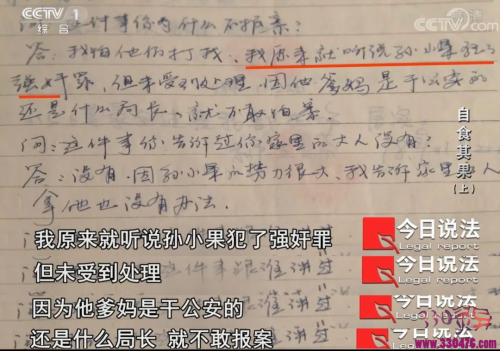 CCTV 1
综合
CCTV.com
问：这件事你为什么不报案：
答：我怕他们打我、我原来就听说孙小果犯了
强奸罪，但未受到处理，因他爸妈是干公安的
还是什么局长、就不敢报案
问：这件事你告诉过你家里的大人没有：
答：没有、因孙小果的势力很大、我告诉家里人
拿他也没有办法．
自食其果
（上）
我原来就听说孙小果犯了强奸罪
但未受到处理
因为他爹妈是干公安的
还是什么局长 就不敢报案
今日说法
Legal report
今日说法
Legal report
今日说法
Legal report
今日说法
www.330476.com